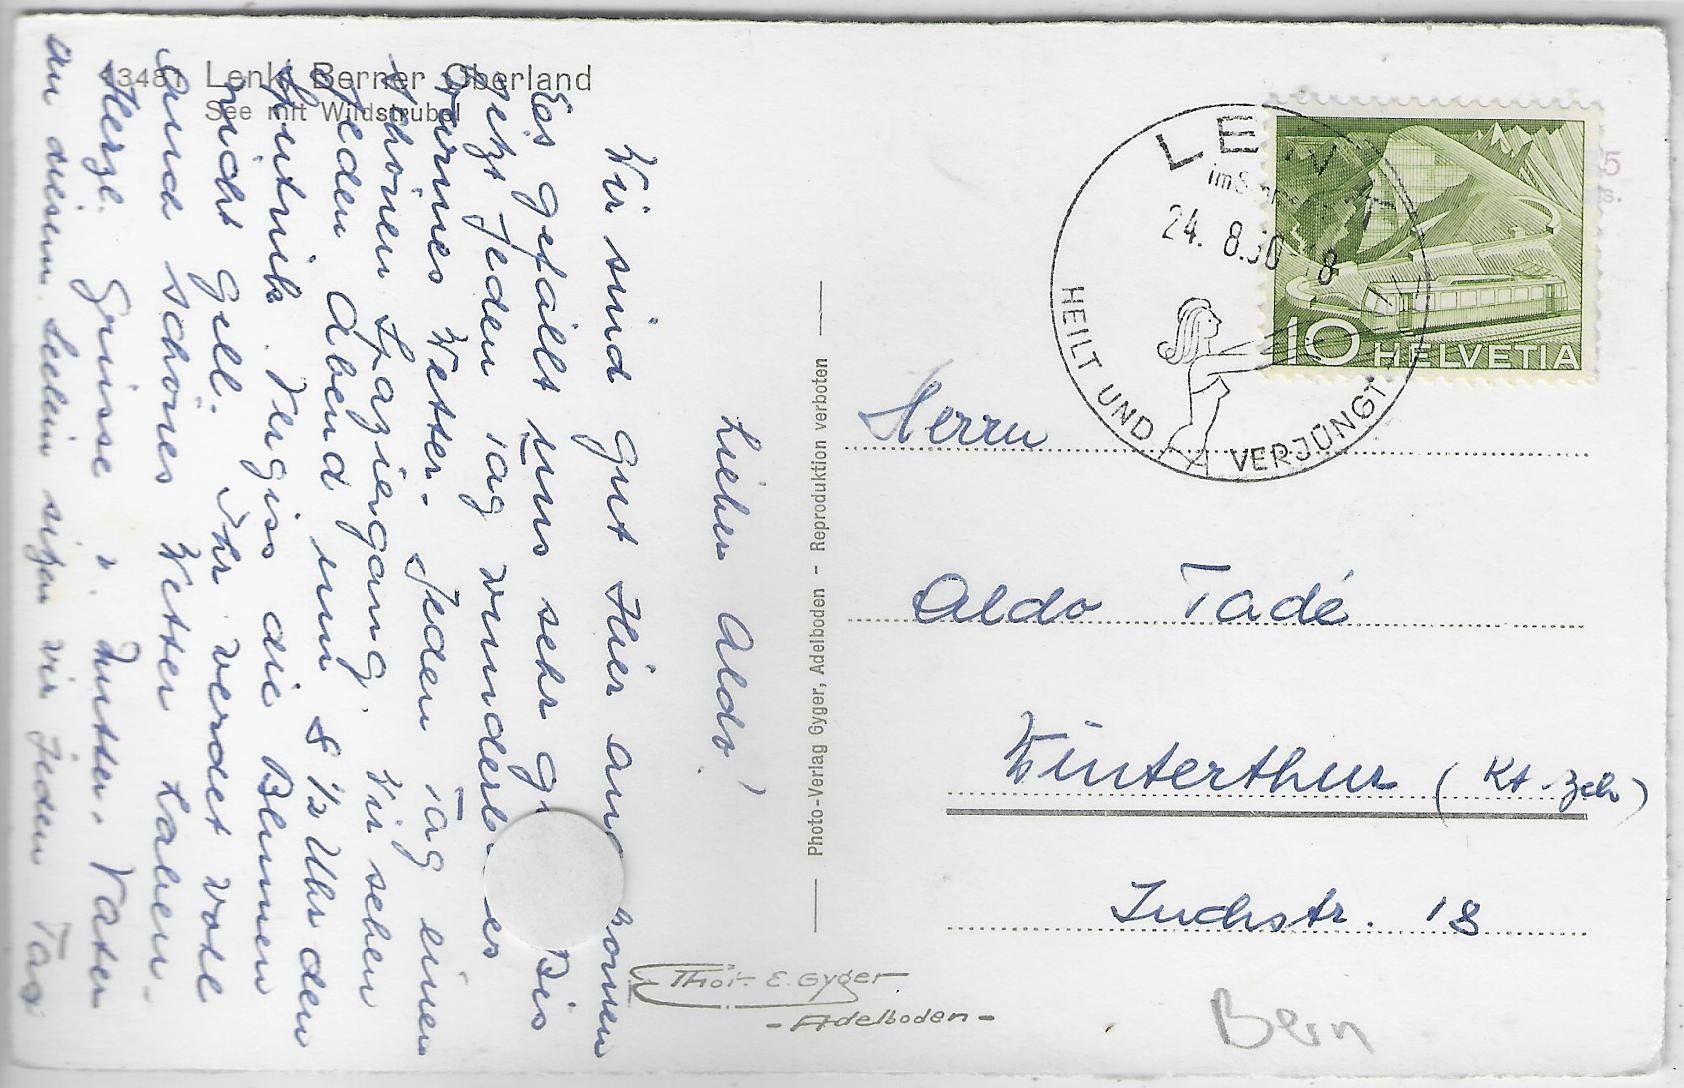 13481 Lenk, Berner Oberland
See mit Wildstrubel
Lieber Aldo!
Wir sind gut Hier an komen
Es gefällt uns sehr g Bis
jezt jeden Tag wunderb es
warmes Wetter. Jeden Tag einen
schönen Spaziergang, Wir sehen
jeden Abend um 8 1/2 Uhr den
Sputnik. Vergiss die Blumen
nicht gell. Ihr werdet wohl
auch schönes Wetter haben.
Herzl. Grüsse v. Mutter, Vater
an diesem Seelein sizen wir jeden Tag
Photo-Verlag Gyger, Adelboden - Reproduktion verboten
Phot. E. Gyger
- Adelboden -
LENK
im Sim
24. 8.60 - 8
HEILT UND VERJÜNGT
10 HELVETIA
5
Herrn
Aldo Tadé
Winterthur (Kt. Zch)
Juchstr. 18
Bern